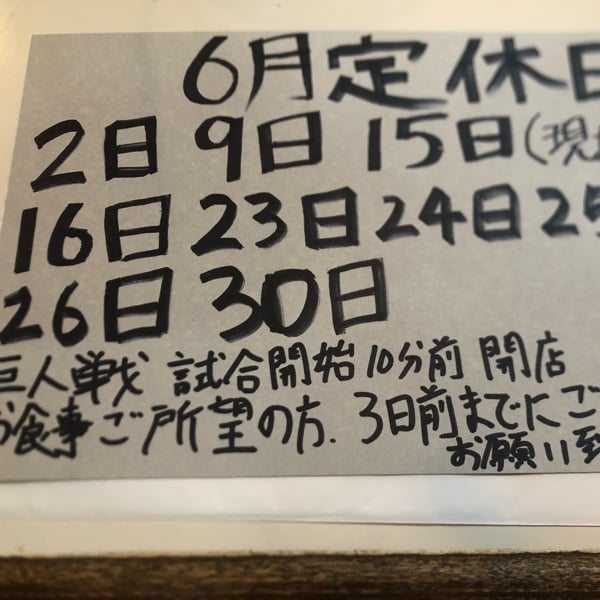 6月定休日
2日 9日 15日(現
16日 23日 24日 25
26日 30日
巨人戦 試合開始10分前 開店
お食事ご所望の方. 3日前までにご
お願い致